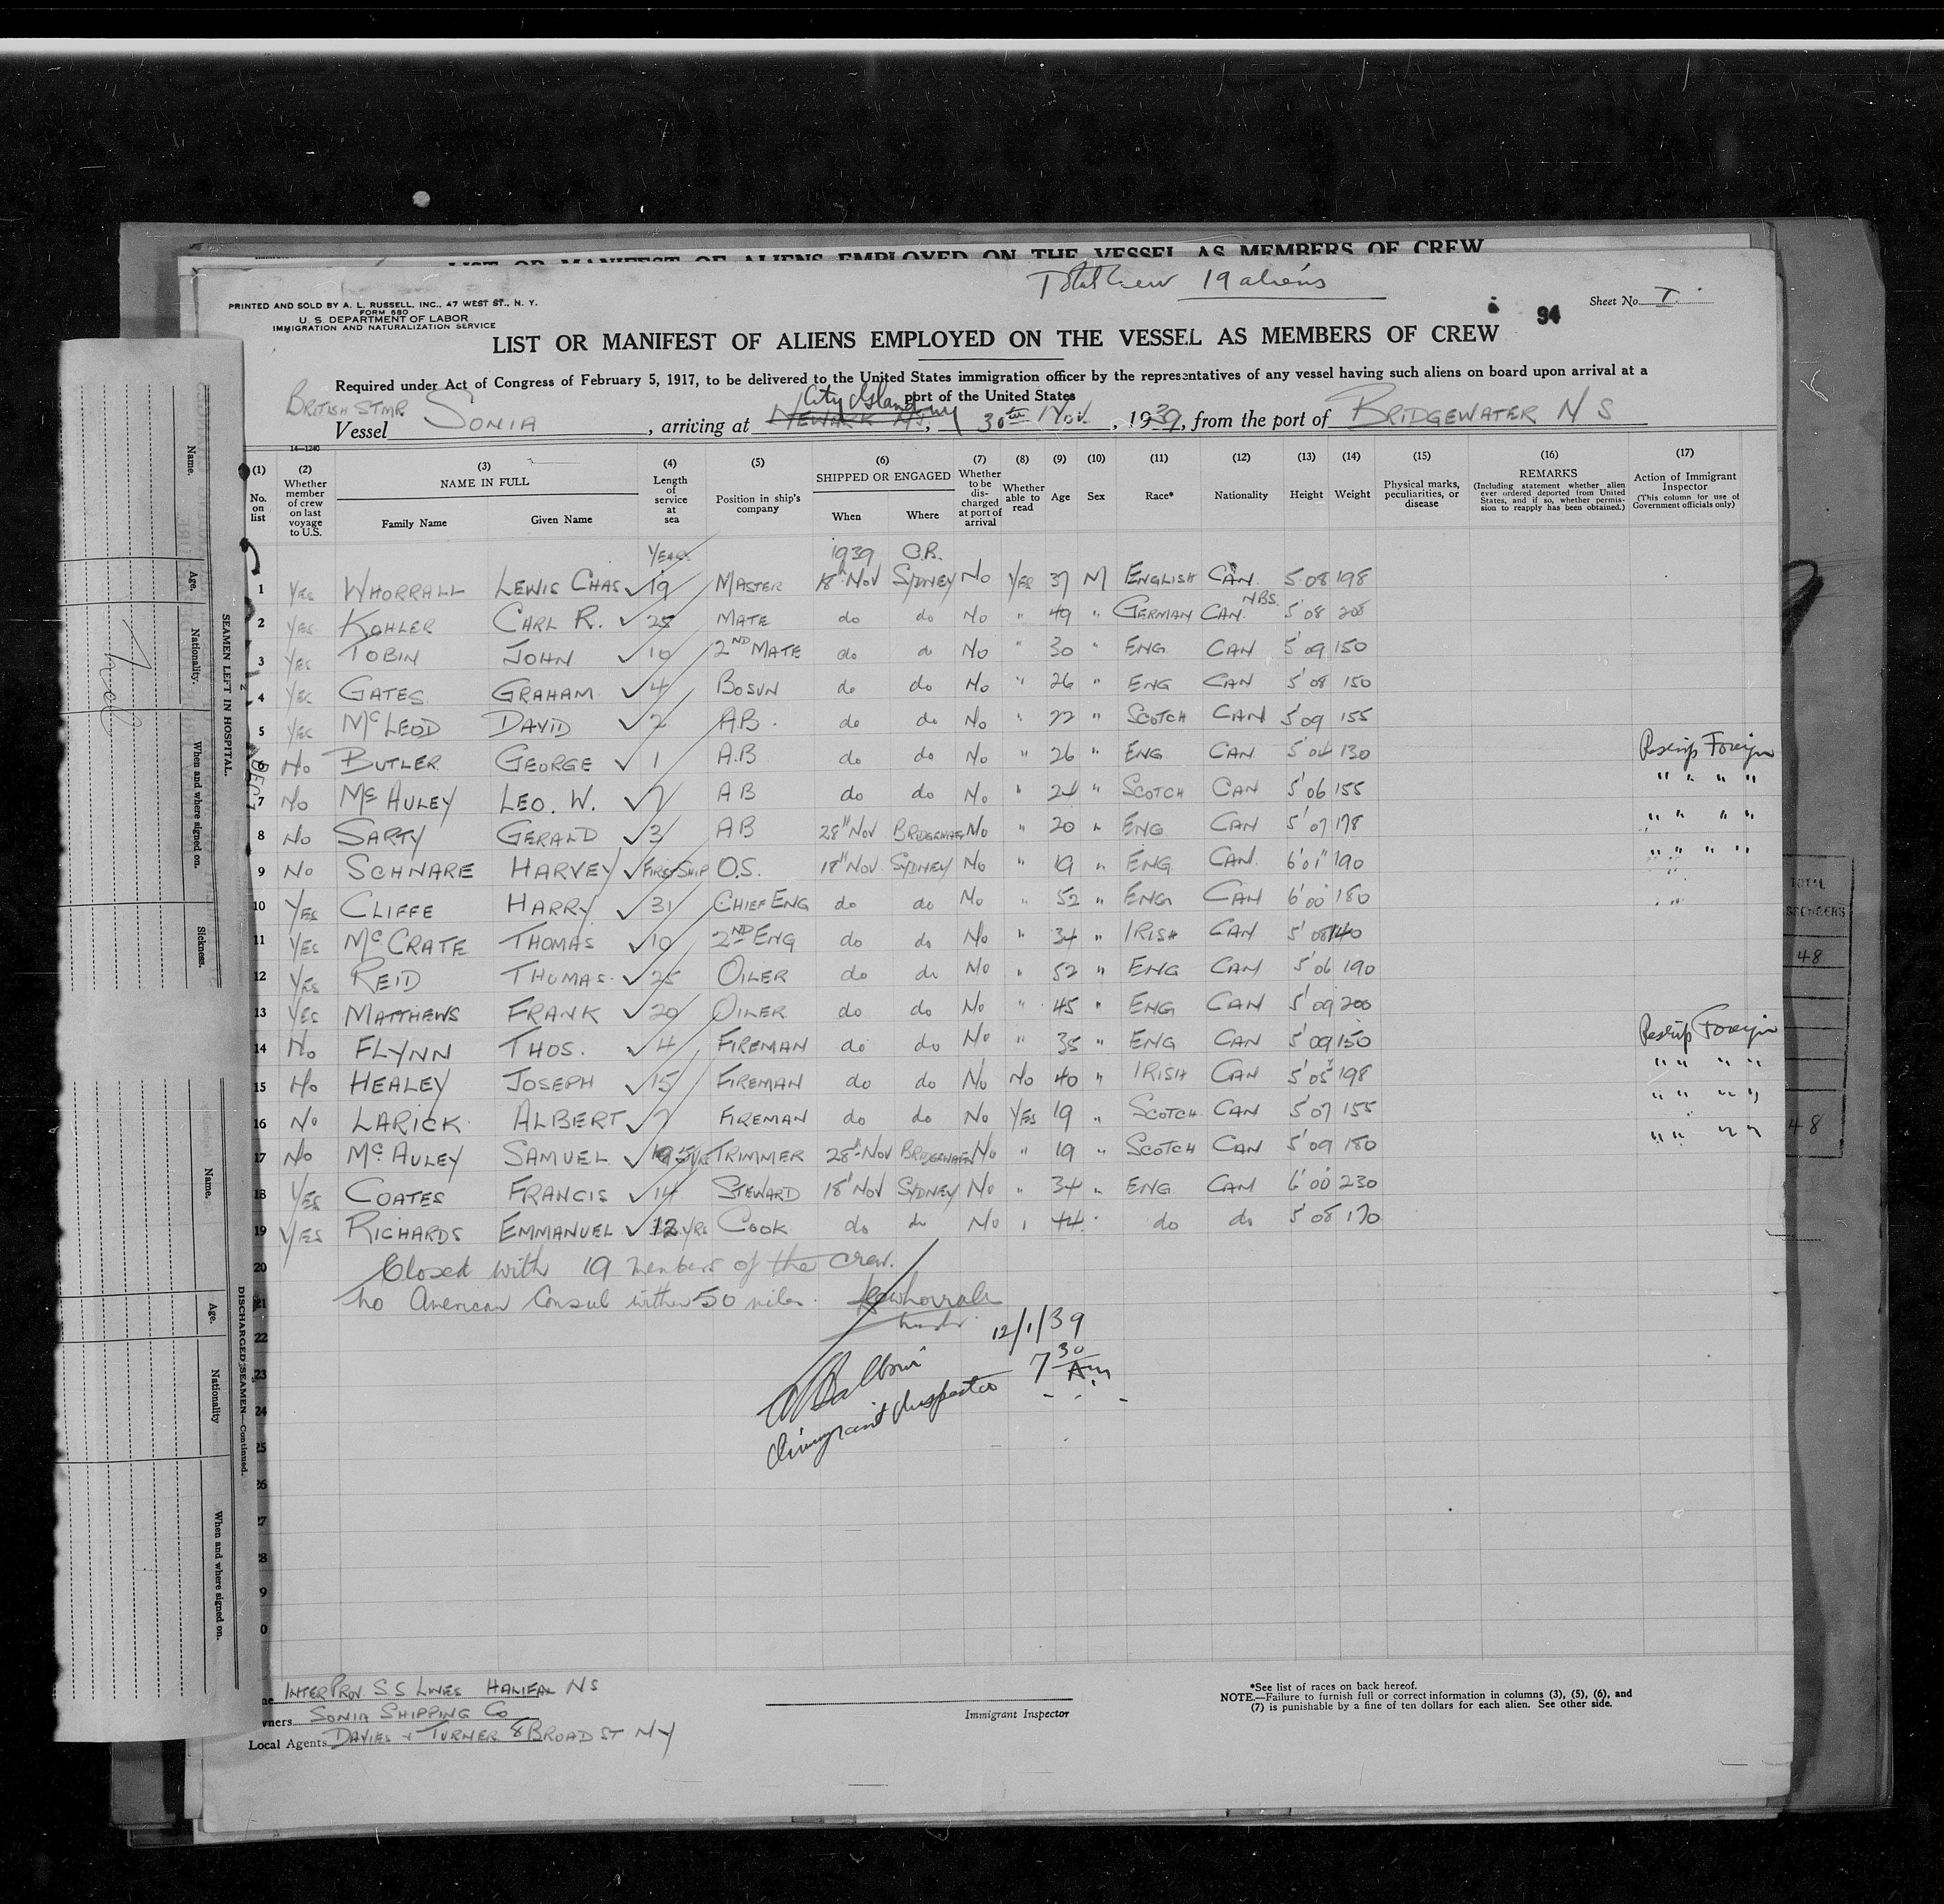 LIST OR MANIFEST OF ALIENS EMPLOYED ON THE VESSEL AS MEMBERS OF CREW
Total Crew 19 aliens
PRINTED AND SOLD BY A. L. RUSSELL, INC., 47 WEST ST., N. Y.
FORM 680
U. S. DEPARTMENT OF LABOR
IMMIGRATION AND NATURALIZATION SERVICE
Sheet No. I
94
LIST OR MANIFEST OF ALIENS EMPLOYED ON THE VESSEL AS MEMBERS OF CREW
Required under Act of Congress of February 5, 1917, to be delivered to the United States immigration officer by the representatives of any vessel having such aliens on board upon arrival at a
port of the United States
City Island NY
BRITISH STMR
Vessel SONIA, arriving at NEWARK NJ., 30th Nov., 1939, from the port of BRIDGEWATER N S
14-1240
(1) No. on list
(2) Whether member of crew on last voyage to U.S.
(3) NAME IN FULL Family Name Given Name
(4) Length of service at sea
(5) Position in ship's company
(6) SHIPPED OR ENGAGED When Where
(7) Whether to be discharged at port of arrival
(8) Whether able to read
(9) Age
(10) Sex
(11) Race*
(12) Nationality
(13) Height
(14) Weight
(15) Physical marks, peculiarities, or disease
(16) REMARKS (Including statement whether alien ever ordered deported from United States, and if so, whether permission to reapply has been obtained.)
(17) Action of Immigrant Inspector (This column for use of Government officials only)
YEARS 1939 C.B.
1 YES WHORRALL LEWIS CHAS 19 MASTER 18th NOV SYDNEY NO YES 37 M ENGLISH CAN 5 08 198
2 YES KOHLER CARL R. 25 MATE do do NO " 49 " GERMAN CAN NBS. 5'08 208
3 YES TOBIN JOHN 10 2ND MATE do do NO " 30 " ENG CAN 5'09 150
4 YES GATES GRAHAM 4 BOSUN do do NO " 26 " ENG CAN 5'08 150
5 YES McLEOD DAVID 2 A.B. do do NO " 22 " SCOTCH CAN 5'09 155
6 NO BUTLER GEORGE 1 A.B do do NO " 26 " ENG CAN 5'04 130 Reship Foreign
7 NO McAULEY LEO. W. 7 AB do do NO " 24 " SCOTCH CAN 5'06 155 " " " "
8 NO SARTY GERALD 3 AB 28th NOV BRIDGEWATER NO " 20 " ENG CAN 5'07 178 " " " "
9 NO SCHNARE HARVEY FIRST SHIP O.S. 18th NOV SYDNEY NO " 19 " ENG CAN. 6'01" 190 " " " "
10 YES CLIFFE HARRY 31 CHIEF ENG do do NO " 52 " ENG CAN 6'00 180
11 YES McCRATE THOMAS 10 2ND ENG do do NO " 34 " IRISH CAN 5'08 140
12 YES REID THOMAS 25 OILER do do NO " 52 " ENG CAN 5'06 190
13 YES MATTHEWS FRANK 20 OILER do do NO " 45 " ENG CAN 5'09 200
14 NO FLYNN THOS. 4 FIREMAN do do NO " 35 " ENG CAN 5'09 150 Reship Foreign
15 NO HEALEY JOSEPH 15 FIREMAN do do NO NO 40 " IRISH CAN 5'05 198 " " " "
16 NO LARICK ALBERT 7 FIREMAN do do NO YES 19 " SCOTCH CAN 5'07 155 " " " "
17 NO McAULEY SAMUEL YRS TRIMMER 28th NOV BRIDGEWATER NO " 19 " SCOTCH CAN 5'09 180 " " " "
18 YES COATES FRANCIS 14 STEWARD 18th NOV SYDNEY NO " 34 " ENG CAN 6'00 230
19 YES RICHARDS EMMANUEL 12 YRS COOK do do NO " 44 " do do 5'08 170
20 Closed with 19 members of the crew.
21 No American Consul within 50 miles. LCWhorrall
22 Master 12/1/39
23 7 30 AM
24 Immigrant Inspector
25
26
27
28
9
0
INTER PROV. S.S LINES HALIFAX NS
wners SONIA SHIPPING CO
Local Agents DAVIES & TURNER 8 BROAD ST NY
Immigrant Inspector
*See list of races on back hereof.
NOTE.—Failure to furnish full or correct information in columns (3), (5), (6), and
(7) is punishable by a fine of ten dollars for each alien. See other side.
SEAMEN LEFT IN HOSPITAL.
Name.
Age.
Nationality.
When and where signed on.
Sickness.
DISCHARGED SEAMEN—Continued.
Name.
Age.
Nationality
When and where signed on.
TOTAL
48
48